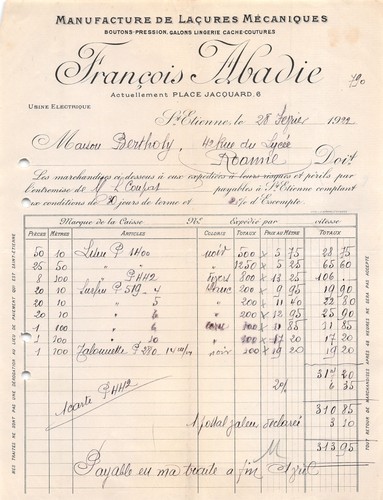 MANUFACTURE DE LAÇURES MÉCANIQUES
BOUTONS-PRESSION, GALONS LINGERIE CACHE-COUTURES
François Abadie
790
Actuellement PLACE JACQUARD, 6
USINE ELECTRIQUE
St-Etienne, le 28 Février 1922
Maison Bertholy, 42 Rue du Lycée
Roanne Doit
Les marchandises ci-dessous à eux expédiées à leurs risques et périls par
l'entremise de Mr L. payables à St-Etienne comptant
aux conditions de 30 jours de terme et 2% d'Escompte.
Marque de la Caisse No Expédié par vitesse
PIÈCES MÈTRES ARTICLES COLORIS TOTAUX PRIX AU MÈTRE TOTAUX
50 10 1400 noir 500 x 5 75 28 75
25 50 " " 1250 x 5 25 65 60
8 100 P 442 800 x 13 25 106
20 10 P 519 4 200 x 9 95 19 90
20 10 " 5 " 200 x 11 40 22 80
20 10 " 6 " 200 x 12 95 25 90
1 100 " 6 100 x 11 85 11 85
1 100 " 6 " 100 x 17 20 17 20
1 100 P 280 noir 100 x 19 20 19 20
317 20
1 carte P 442 2% 6 35
310 85
1 postal 3 10
313 95
Payable en ma traite à fin Avril
MES TRAITES NE SONT PAS UNE DÉROGATION AU LIEU DE PAIEMENT QUI EST SAINT-ÉTIENNE
TOUT RETOUR DE MARCHANDISES APRÈS 48 HEURES NE SERA PAS ACCEPTÉ